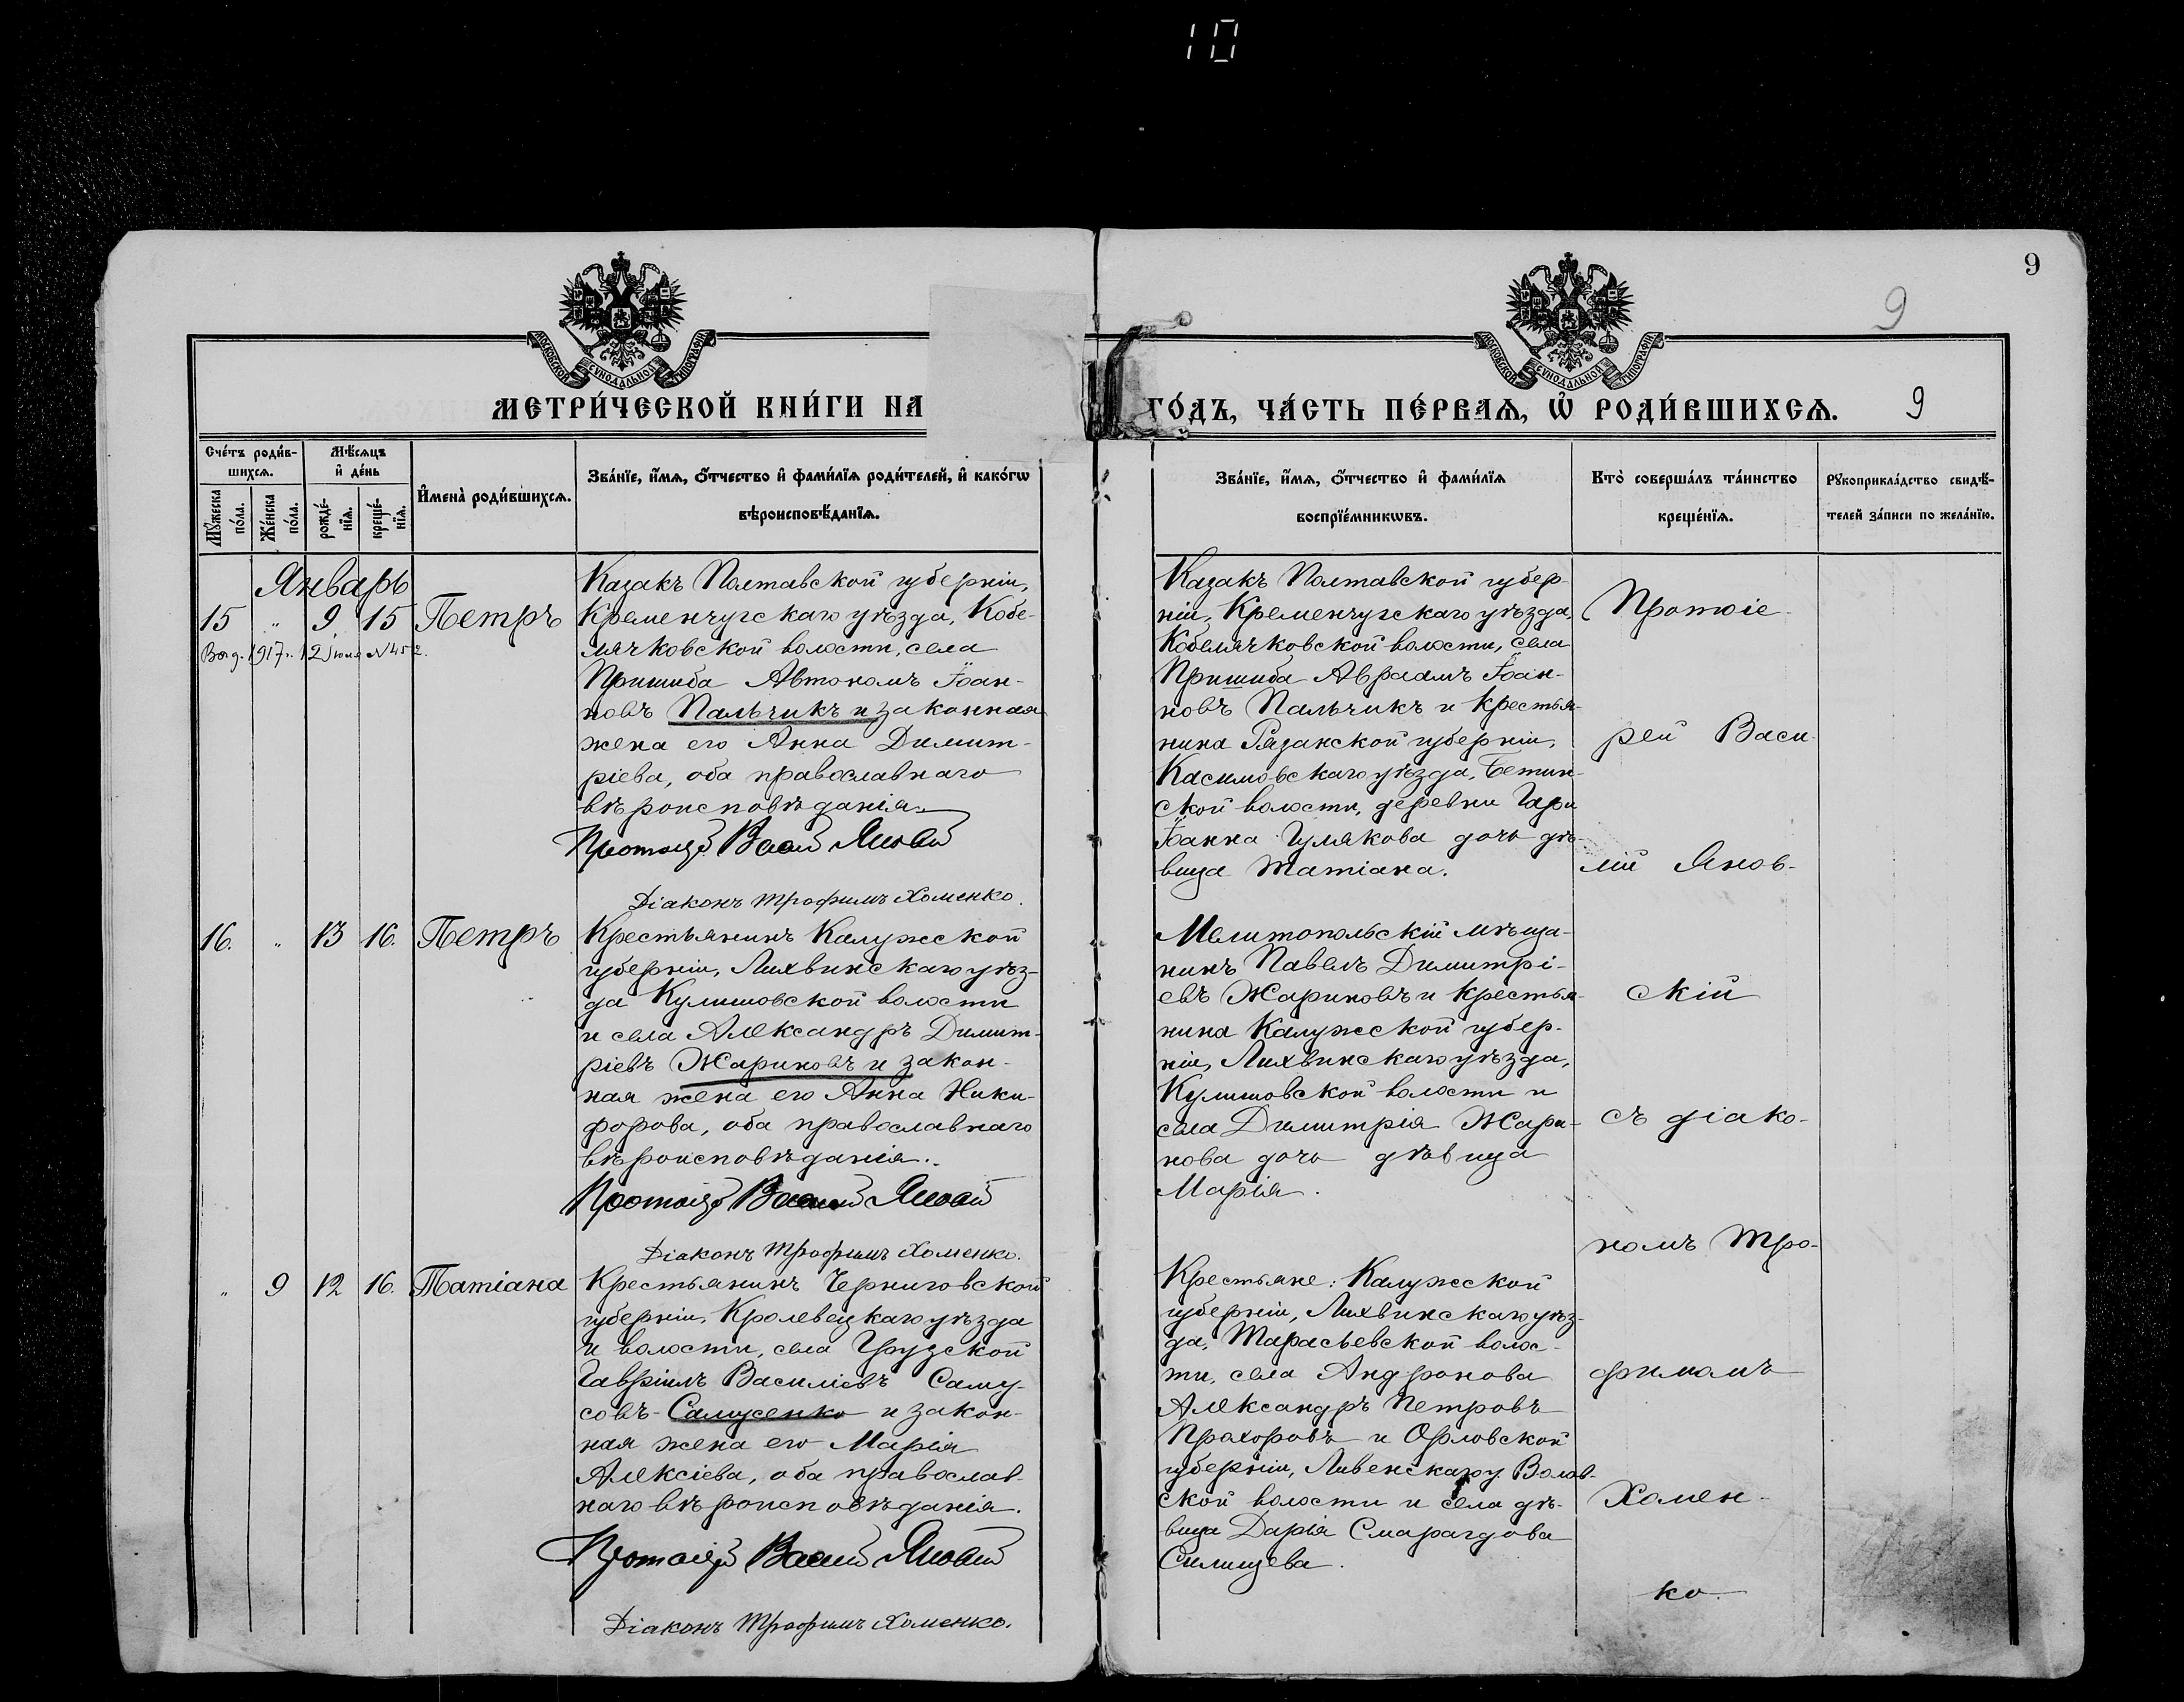 10
9
9
МОСКОВСКОЙ СУНОДАЛЬНОЙ ТИПОГРАФІИ
МОСКОВСКОЙ СУНОДАЛЬНОЙ ТИПОГРАФІИ
МЕТРИ́ЧЕСКОЙ КНИ́ГИ НА
ГО́ДЪ, ЧА́СТЬ ПЕ́РВАѦ, Ѡ҆ РОДИ́ВШИХСѦ.
9
Сче́тъ роди́в-
шихсѧ.
Мѣ́сѧцъ
и҆ де́нь
Мꙋ́жеска
по́ла.
Же́нска
по́ла.
рожде́-
нїѧ.
креще́-
нїѧ.
И҆мена̀ роди́вшихсѧ.
Зва́нїе, и҆́мѧ, ѻ҆́тчество и҆ фами́лїѧ роди́телей, и҆ како́гѡ
вѣроисповѣ́данїѧ.
Зва́нїе, и҆́мѧ, ѻ҆́тчество и҆ фами́лїѧ
воспрїе́мникѡвъ.
Кто̀ соверша́лъ та́инство
креще́нїѧ.
Рꙋкоприкла́дство свидѣ́-
телей за́писи по жела́нїю.
Январь
15 " 9 15 Петръ
Выд. 1917 г. 12 Іюля № 452.
Казакъ Полтавской губерніи,
Кременчугскаго уѣзда, Кобе-
лячковской волости, села
Пришиба Автономъ Іоан-
новъ Пальчикъ и законная
жена его Анна Димит-
ріева, оба православнаго
вѣроисповѣданія.
Протоіерей Василій Яновскій
Діаконъ Трофимъ Хоменко.
Казакъ Полтавской губер-
ніи, Кременчугскаго уѣзда,
Кобелячковской волости, села
Пришиба Авраамъ Іоан-
новъ Пальчикъ и крестья-
нина Рязанской губерніи,
Касимовскаго уѣзда, Бетин-
ской волости, деревни Гари
Іоанна Гулякова дочь дѣ-
вица Татіана.
16. " 13 16. Петръ
Крестьянинъ Калужской
губерніи, Лихвинскаго уѣз-
да Кулешовской волости
и села Александръ Димит-
ріевъ Жариковъ и закон-
ная жена его Анна Ники-
форова, оба православнаго
вѣроисповѣданія.
Протоіерей Василій Яновскій
Діаконъ Трофимъ Хоменко.
Мелитопольскій мѣща-
нинъ Павелъ Димитрі-
евъ Жариковъ и крестья-
нина Калужской губер-
ніи, Лихвинскаго уѣзда,
Кулешовской волости и
села Димитрія Жари-
кова дочь дѣвица
Марія.
" 9 12 16. Татіана
Крестьянинъ Черниговской
губерніи, Кролевецкаго уѣзда
и волости, села Грузской
Гавріилъ Василіевъ Саму-
совъ-Самусенко и закон-
ная жена его Марія
Алексіева, оба православ-
наго вѣроисповѣданія.
Протоіерей Василій Яновскій
Діаконъ Трофимъ Хоменко.
Крестьяне: Калужской
губерніи, Лихвинскаго уѣз-
да, Тарасьевской волос-
ти, села Андронова
Александръ Петровъ
Прохоровъ и Орловской
губерніи, Ливенскаго у. Волов-
ской волости и села дѣ-
вица Дарія Смарагдова
Силищева.
Протоіе-
рей Васи-
лій Янов-
скій
съ діако-
номъ Тро-
фимомъ
Хомен-
ко.